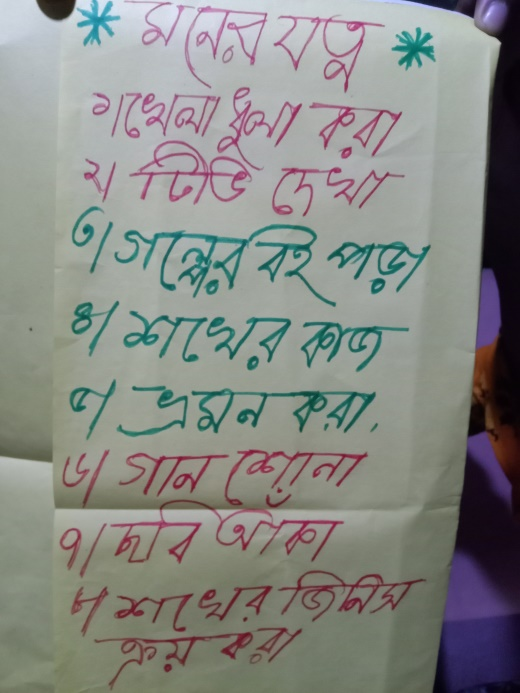 * মনের যত্ন *
১। খেলা ধুলা করা
২। টিভি দেখা
৩। গল্পের বই পড়া
৪। শখের কাজ
৫। ভ্রমন করা.
৬। গান শোনা
৭। ছবি আঁকা
৮। শখের জিনিস
ক্রয় করা